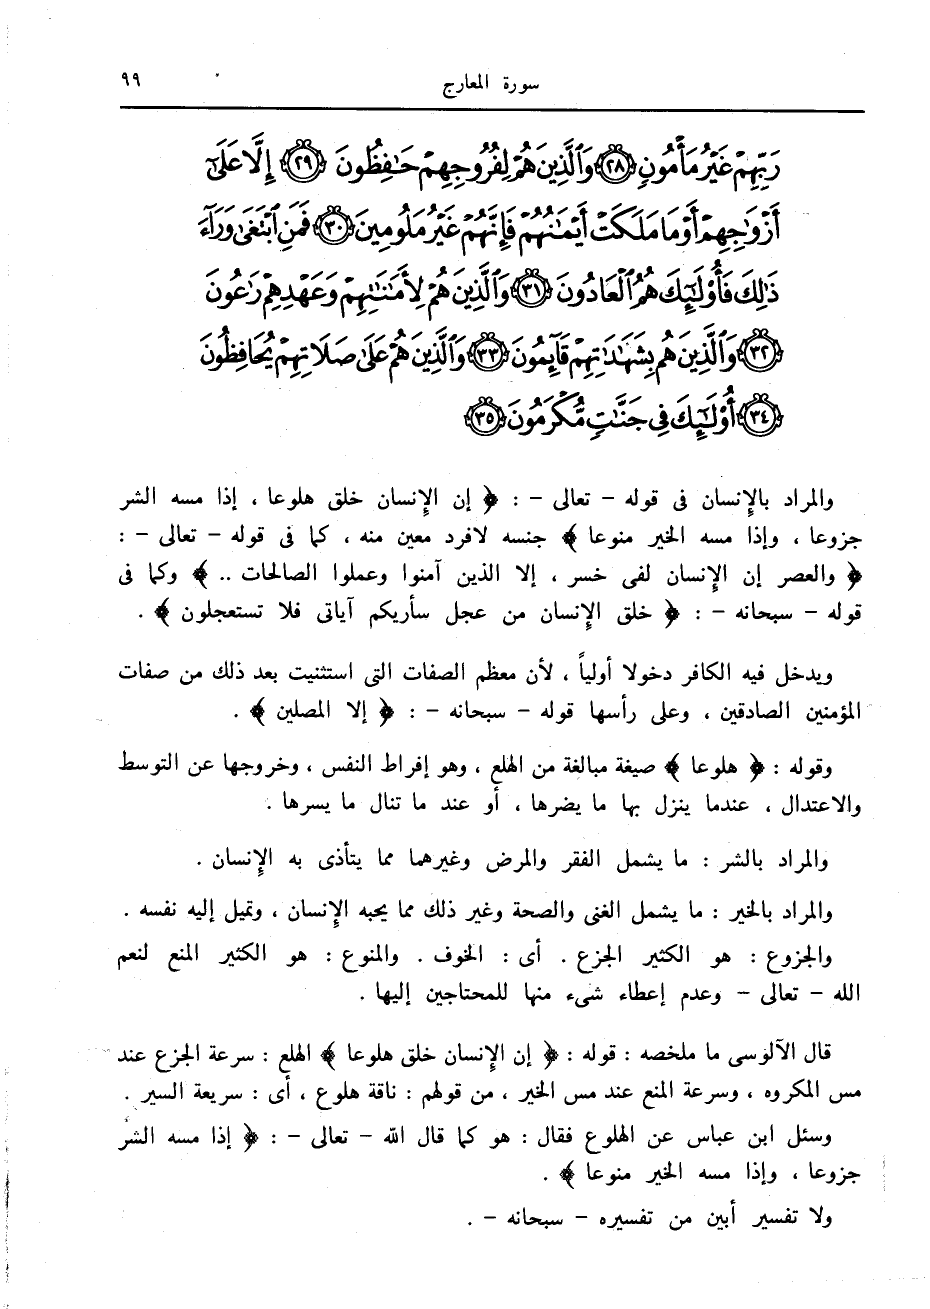 سورة المعارج ٩٩
رَبِّهِمْ غَيْرُ مَأْمُونٍ ﴿٢٨﴾ وَالَّذِينَ هُمْ لِفُرُوجِهِمْ حَافِظُونَ ﴿٢٩﴾ إِلَّا عَلَىٰٓ
أَزْوَاجِهِمْ أَوْ مَا مَلَكَتْ أَيْمَانُهُمْ فَإِنَّهُمْ غَيْرُ مَلُومِينَ ﴿٣٠﴾ فَمَنِ ابْتَغَى وَرَآءَ
ذَالِكَ فَأُوْلَٰٓئِكَ هُمُ الْعَادُونَ ﴿٣١﴾ وَالَّذِينَ هُمْ لِأَمَانَاتِهِمْ وَعَهْدِهِمْ رَاعُونَ
﴿٣٢﴾ وَالَّذِينَ هُم بِشَهَادَاتِهِمْ قَآئِمُونَ ﴿٣٣﴾ وَالَّذِينَ هُمْ عَلَىٰ صَلَاتِهِمْ يُحَافِظُونَ
﴿٣٤﴾ أُوْلَٰٓئِكَ فِي جَنَّاتٍ مُّكْرَمُونَ ﴿٣٥﴾
والمراد بالإنسان فى قوله - تعالى - : ﴿ إن الإنسان خلق هلوعا ، إذا مسه الشر
جزوعا ، وإذا مسه الخير منوعا ﴾ جنسه لافرد معين منه ، كما فى قوله - تعالى - :
﴿ والعصر إن الإنسان لفى خسر ، إلا الذين آمنوا وعملوا الصالحات .. ﴾ وكما فى
قوله - سبحانه - : ﴿ خلق الإنسان من عجل سأريكم آياتى فلا تستعجلون ﴾ .
ويدخل فيه الكافر دخولا أولياً ، لأن معظم الصفات التى استثنيت بعد ذلك من صفات
المؤمنين الصادقين ، وعلى رأسها قوله - سبحانه - : ﴿ إلا المصلين ﴾ .
وقوله : ﴿ هلوعا ﴾ صيغة مبالغة من الهلع ، وهو إفراط النفس ، وخروجها عن التوسط
والاعتدال ، عندما ينزل بها ما يضرها ، أو عند ما تنال ما يسرها .
والمراد بالشر : ما يشمل الفقر والمرض وغيرهما مما يتأذى به الإنسان .
والمراد بالخير : ما يشمل الغنى والصحة وغير ذلك مما يحبه الإنسان ، وتميل إليه نفسه .
والجزوع : هو الكثير الجزع . أى : الخوف . والمنوع : هو الكثير المنع لنعم
الله - تعالى - وعدم إعطاء شىء منها للمحتاجين إليها .
قال الآلوسى ما ملخصه : قوله : ﴿ إن الإنسان خلق هلوعا ﴾ الهلع : سرعة الجزع عند
مس المكروه ، وسرعة المنع عند مس الخير ، من قولهم : ناقة هلوع ، أى : سريعة السير .
وسئل ابن عباس عن الهلوع فقال : هو كما قال الله - تعالى - : ﴿ إذا مسه الشر
جزوعا ، وإذا مسه الخير منوعا ﴾ .
ولا تفسير أبين من تفسيره - سبحانه - .